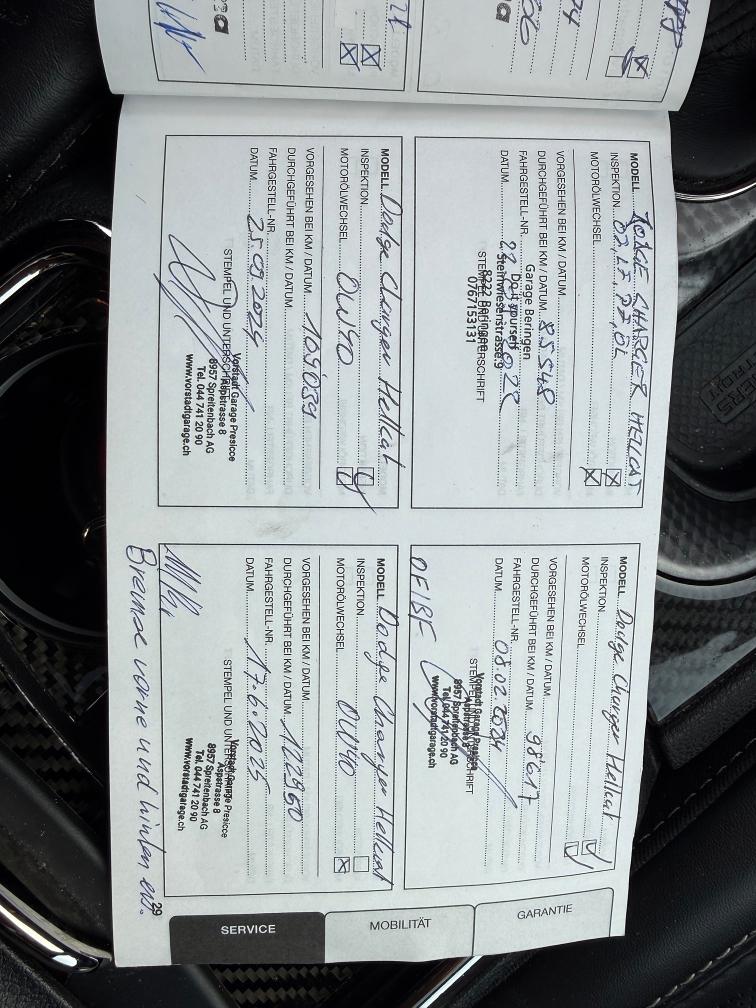 MODELL DODGE CHARGER HELLCAT
INSPEKTION
MOTORÖLWECHSEL
VORGESEHEN BEI KM / DATUM
DURCHGEFÜHRT BEI KM / DATUM 85548
FAHRGESTELL-NR.
DATUM
STEMPEL UND UNTERSCHRIFT
Garage Beringen
Do it yourself
Steinwiesenstrasse 9
8222 Beringen
0767153131
MODELL Dodge Charger Hellcat
INSPEKTION
MOTORÖLWECHSEL
VORGESEHEN BEI KM / DATUM
DURCHGEFÜHRT BEI KM / DATUM 98'617
FAHRGESTELL-NR.
DATUM 08.02.2024
STEMPEL UND UNTERSCHRIFT
Vorstadt Garage Presicce
Alpstrasse 8
8957 Spreitenbach AG
Tel. 044 741 20 90
www.vorstadtgarage.ch
MODELL Dodge Charger Hellcat
INSPEKTION
MOTORÖLWECHSEL 0W40
VORGESEHEN BEI KM / DATUM 109039
DURCHGEFÜHRT BEI KM / DATUM
FAHRGESTELL-NR.
DATUM 25.09.2024
STEMPEL UND UNTERSCHRIFT
Vorstadt Garage Presicce
Alpstrasse 8
8957 Spreitenbach AG
Tel. 044 741 20 90
www.vorstadtgarage.ch
MODELL Dodge Charger Hellcat
INSPEKTION
MOTORÖLWECHSEL 0W40
VORGESEHEN BEI KM / DATUM
DURCHGEFÜHRT BEI KM / DATUM 122960
FAHRGESTELL-NR.
DATUM 17.6.2025
STEMPEL UND UNTERSCHRIFT
Vorstadt Garage Presicce
Alpstrasse 8
8957 Spreitenbach AG
Tel. 044 741 20 90
www.vorstadtgarage.ch
Bremse vorne und hinten ers.
29
GARANTIE
MOBILITÄT
SERVICE